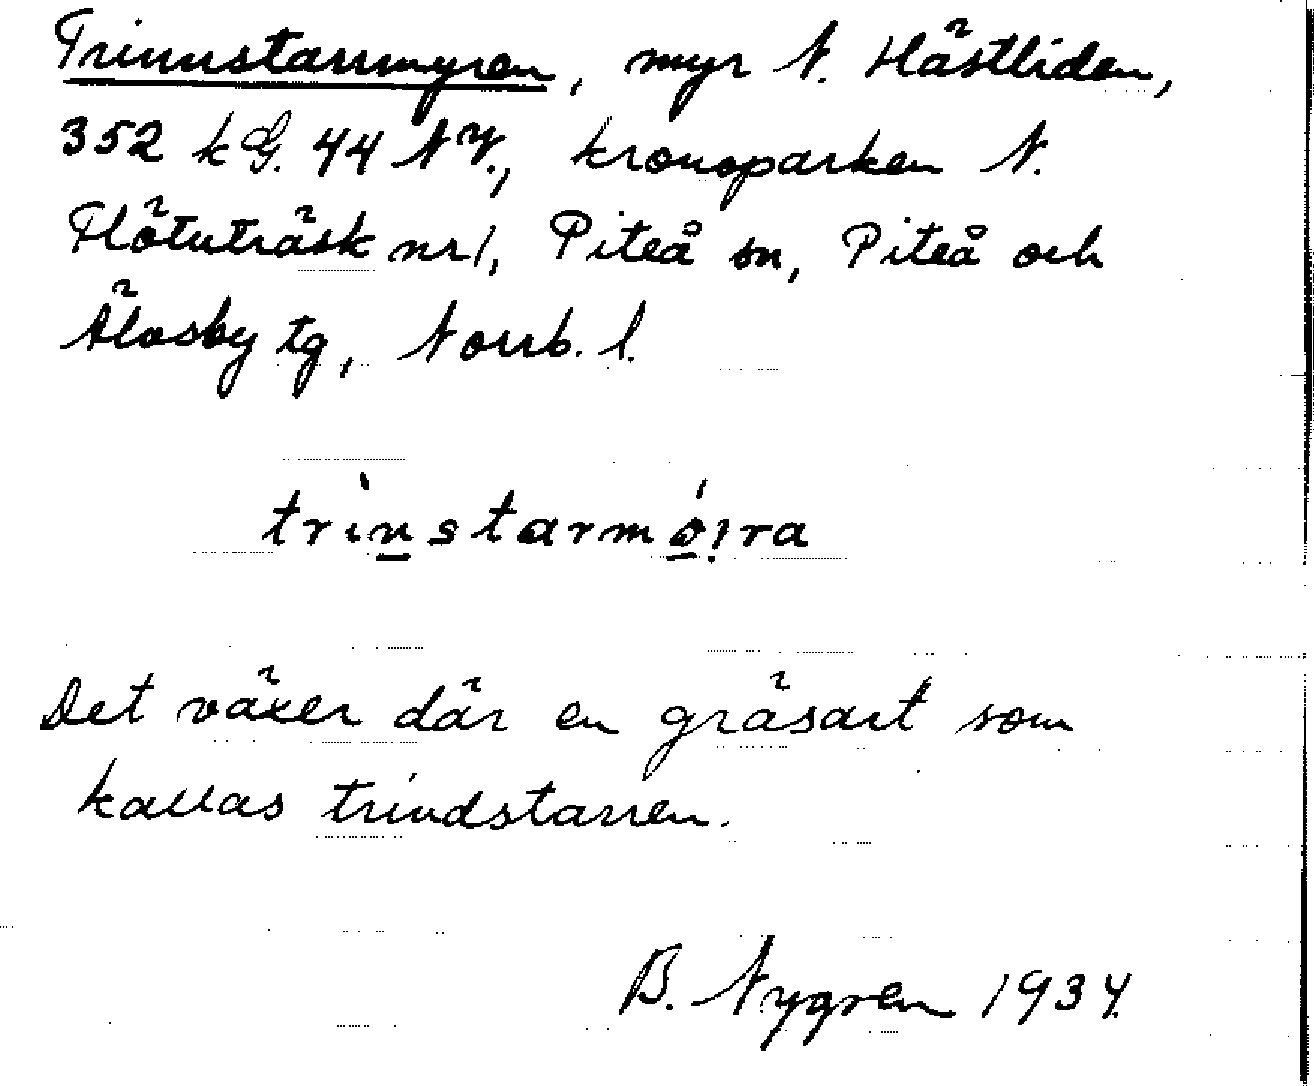 Trinnstarrmyren, myr N. Hästliden,
352 k G. 44 N V., kronoparken N.
Flötuträsk nr 1, Piteå sn, Piteå och
Älvsby tg, Norrb. l.
trìnstarmó̱i̯ra
Det växer där en gräsart som
kallas trindstarren.
B. Nygren 1934.